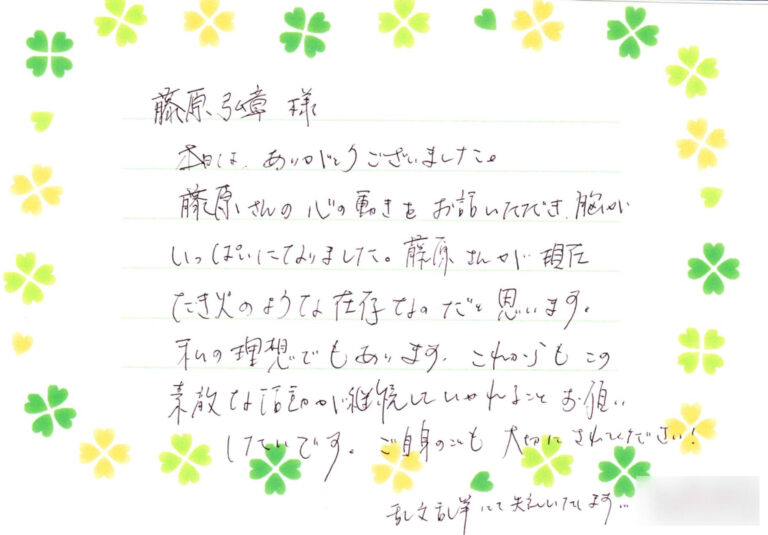 藤原弘章 様
本日は、ありがとうございました。
藤原さんの心の動きをお話いただき、胸が
いっぱいになりました。藤原さんが現在
たき火のような在存なのだと思います。
私の理想でもあります。これからもこの
素敵な活動が継続していかれることお願い
したいです。ご自身のことも大切にされてください!
乱文乱筆にて失礼いたします…